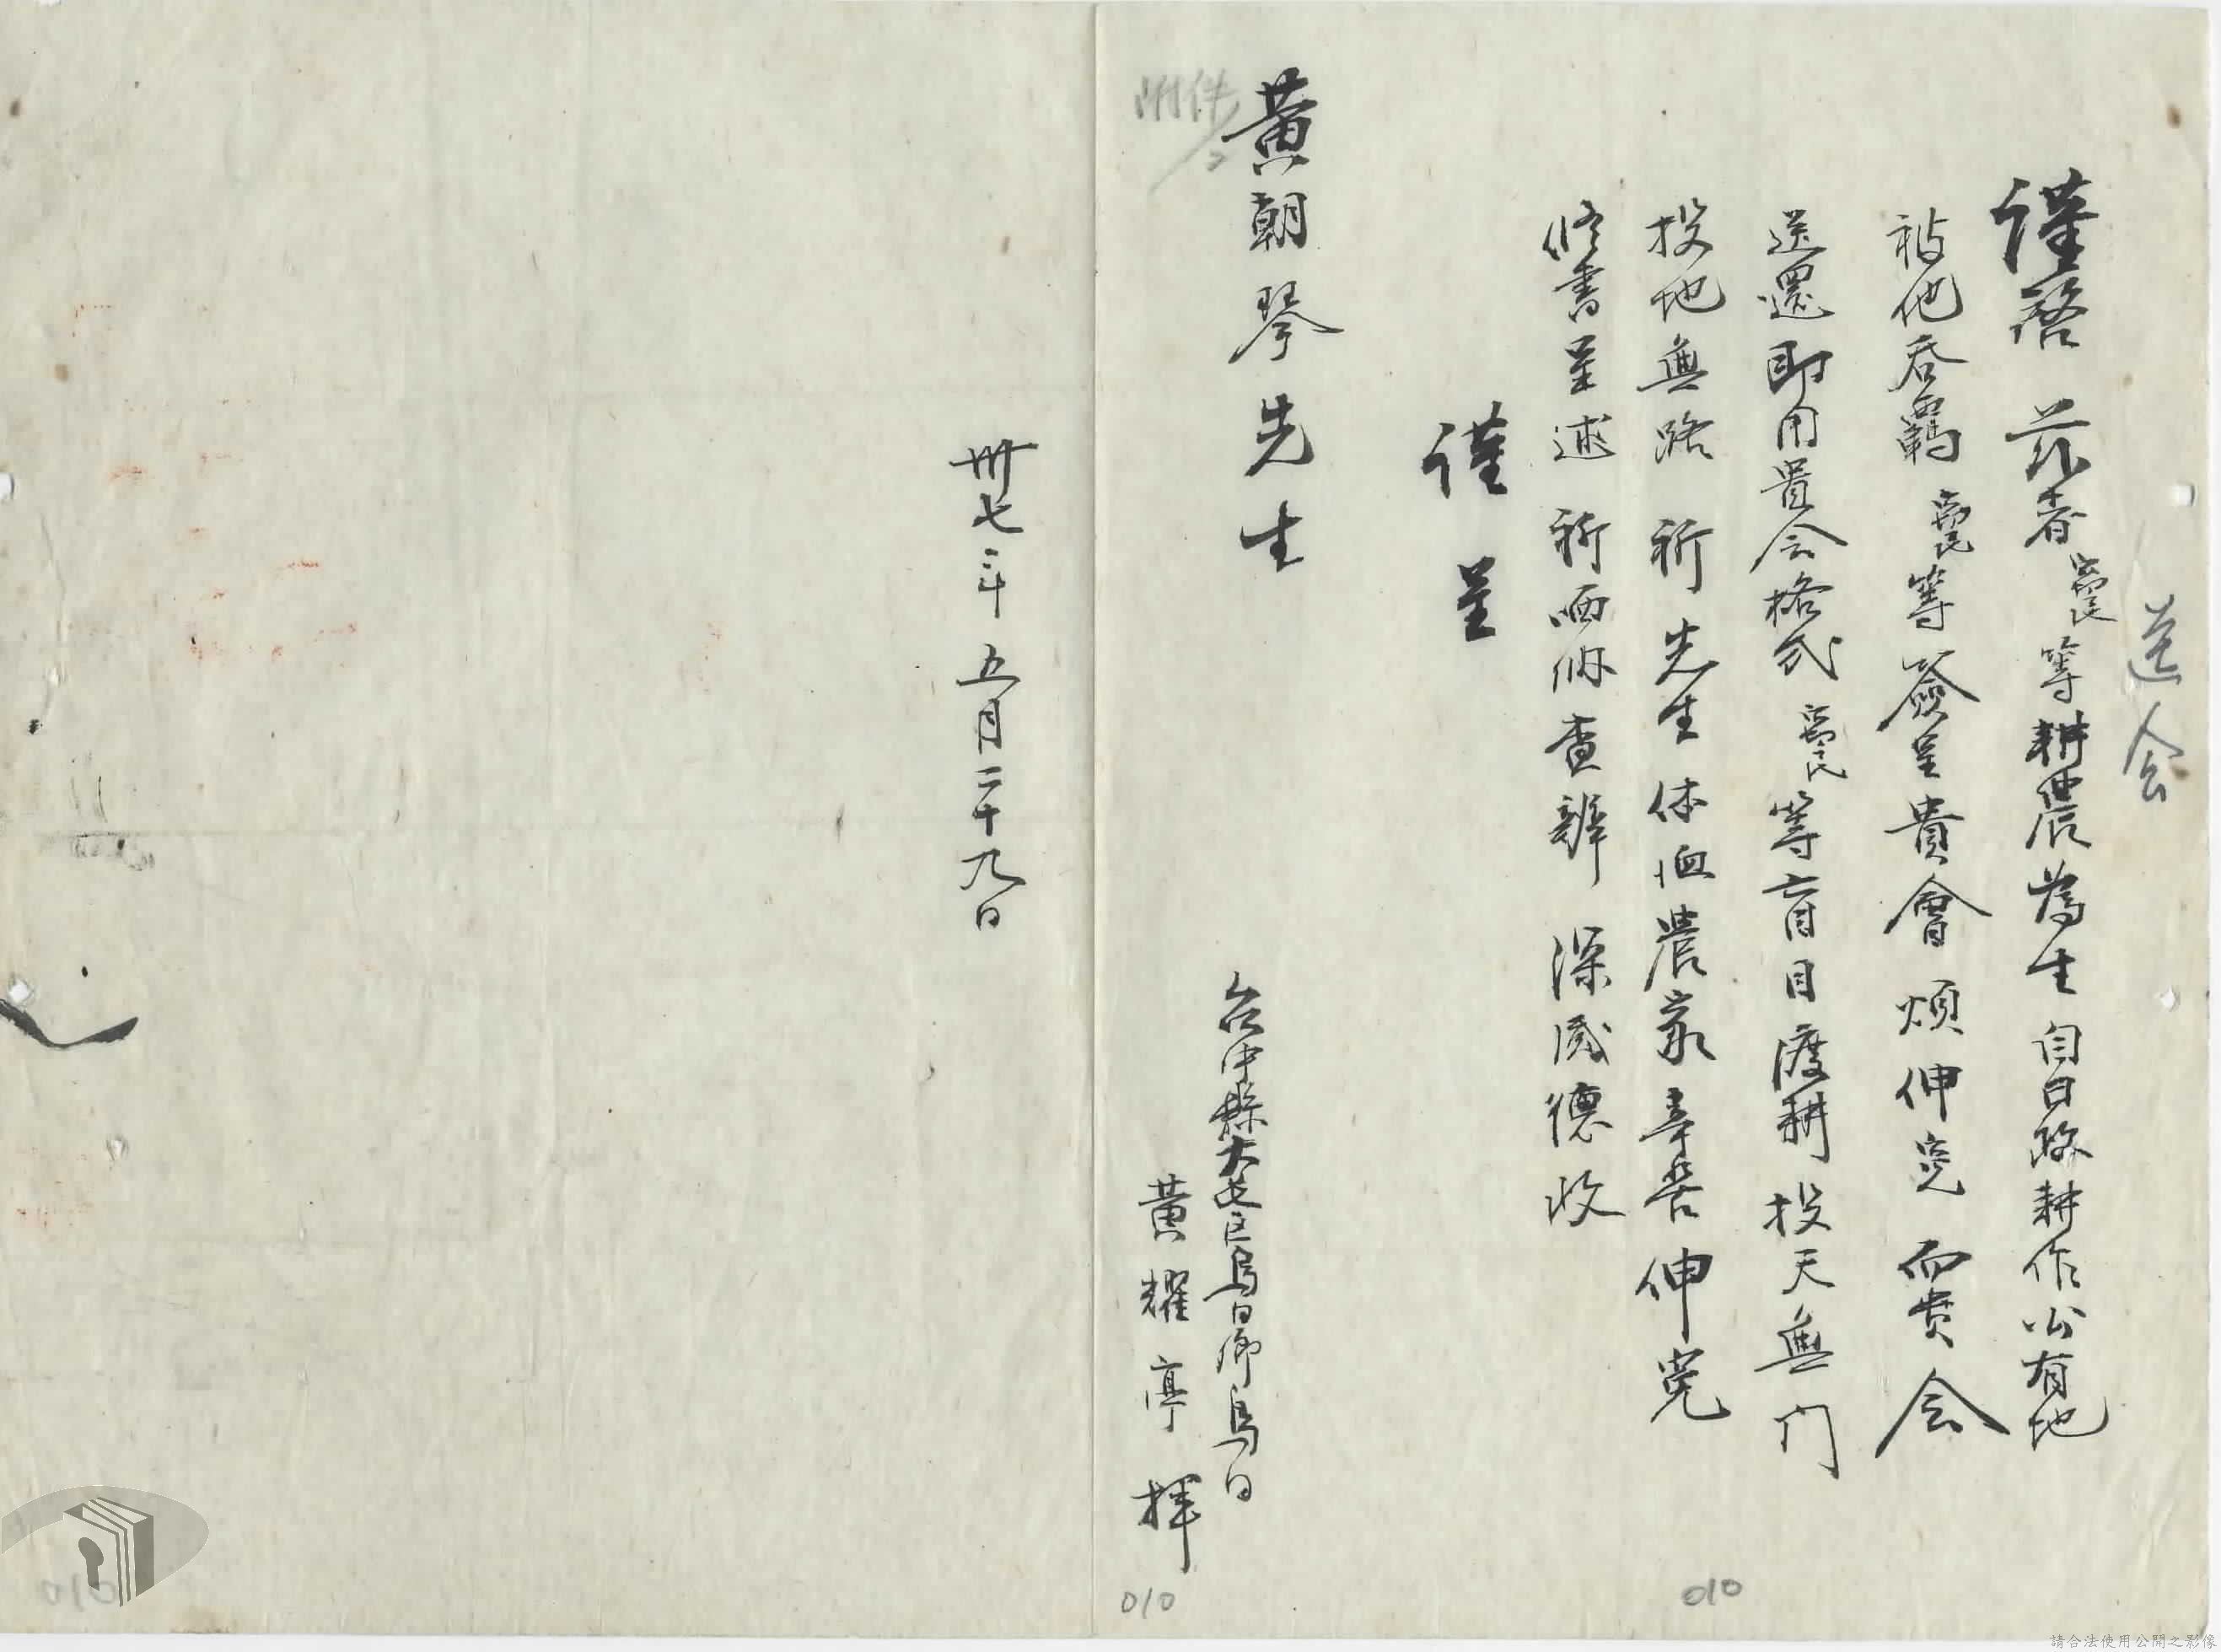 送会
謹啓 茲者農民等耕農為生 自日政耕作公有地
被他吞覇 農民等簽呈貴會 煩伸冤 而貴会
送還即用貴会格式 農民等盲目渡耕 投天無門
投地無路 祈 先生体恤農家辛苦伸冤
修書呈述 祈哂侭查辦 深感德政
謹呈
黃朝琴先生
附件
台中縣大屯区烏日鄉烏日
黃耀亭 拝
卅七年五月二十九日
010
010
010
請合法使用公開之影像